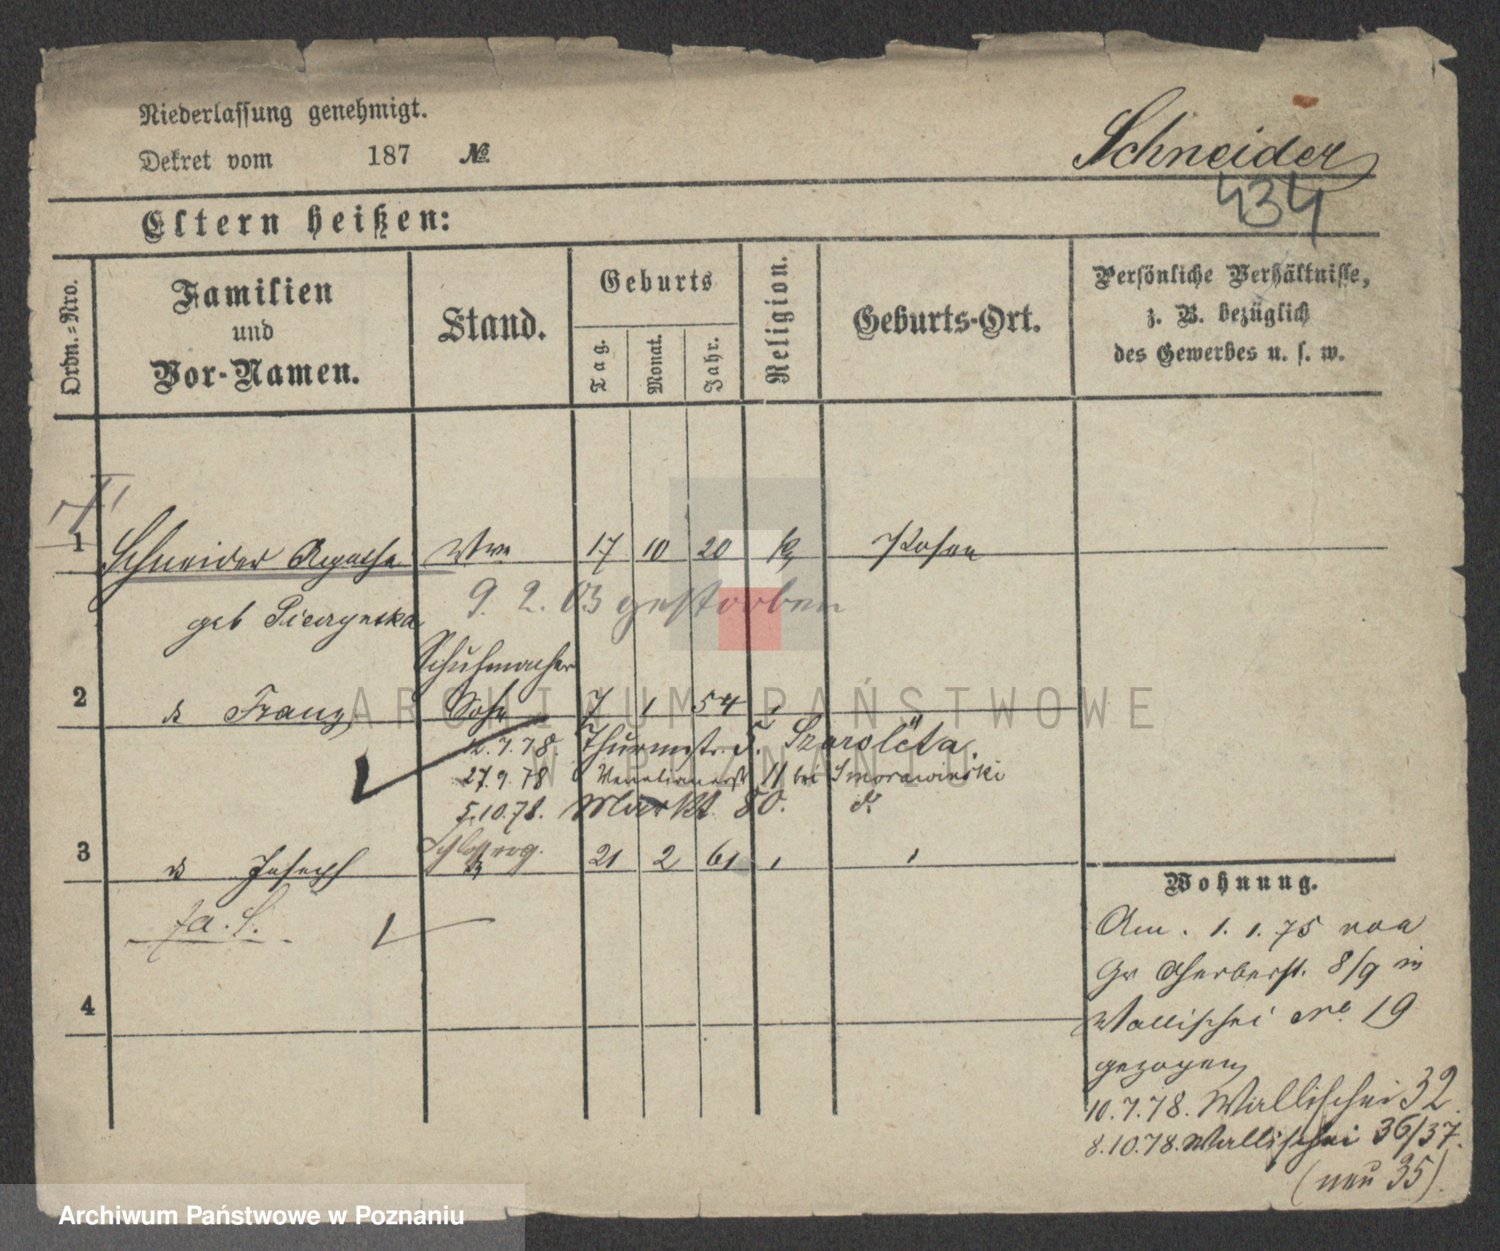 Niederlassung genehmigt.
Dekret vom 187 №
Schneider
434
Eltern heißen:
Ordn.=Nro.
Familien
und
Vor-Namen.
Stand.
Geburts
Tag.
Monat.
Jahr.
Religion.
Geburts-Ort.
Persönliche Verhältnisse,
z. B. bezüglich
des Gewerbes u. s. w.
1 Schneider Agathe Wwe 17 10 20 k Posen
geb
9. 2. 03 gestorben
Schuhmacher
2 Franz Sohn 7 1 54
12.7.78. Thurmstr. 5.
27.9.78 Venetianerstr 11 bei Smorawinski
5.10.78. Markt 80. d.
3 Joseph 21 2 61
4
Wohnung.
Am. 1. 1. 75 von
Gr Gerberst. 8/9 in
Wallischei No 19
gezogen
10.7.78. Wallischei 32.
8.10.78. Wallischei 36/37.
(neu 35).
ARCHIWUM PAŃSTWOWE
W POZNANIU
Archiwum Państwowe w Poznaniu